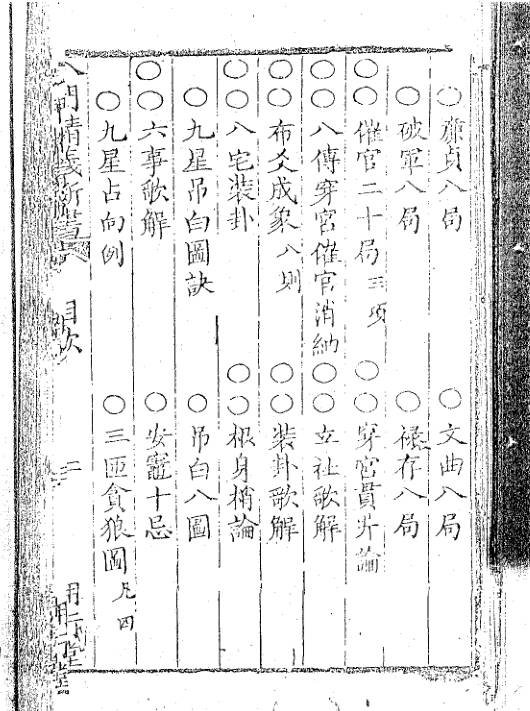 ○廉貞八局 ○文曲八局
○破軍八局 ○祿存八局
○○催官二十局 三項 ○○穿宮貫井論
○○八傳穿宮催官消納 ○○立社歌解
○○布爻成象 八則 ○○裝卦歌解
○○八宅裝卦 ○○根身捎論
○九星吊白圖訣 ○吊白八圖
○○六事歌解 ○安竈十忌
○九星占向例 ○三匝貪狼圖 凡四
八門精義 目次 二